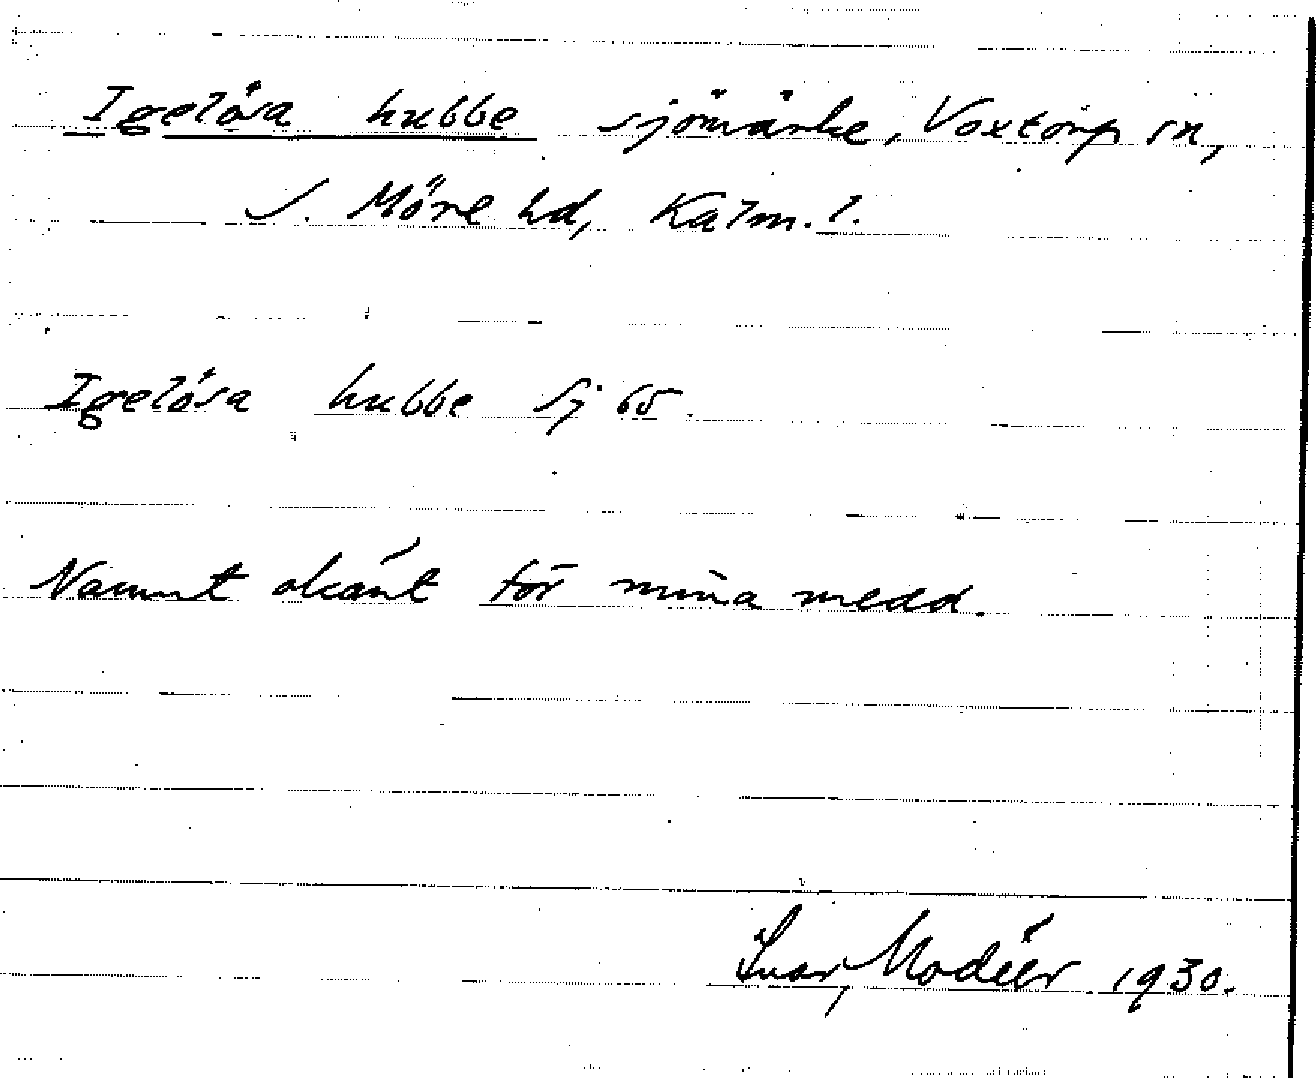 Igelösa hubbe sjömärke, Voxtorp sn,
S. Möre hd, Kalm. l.
Igelösa hubbe Sj 65.
Namnet okänt för mina medd.
Ivar Modéer 1930.